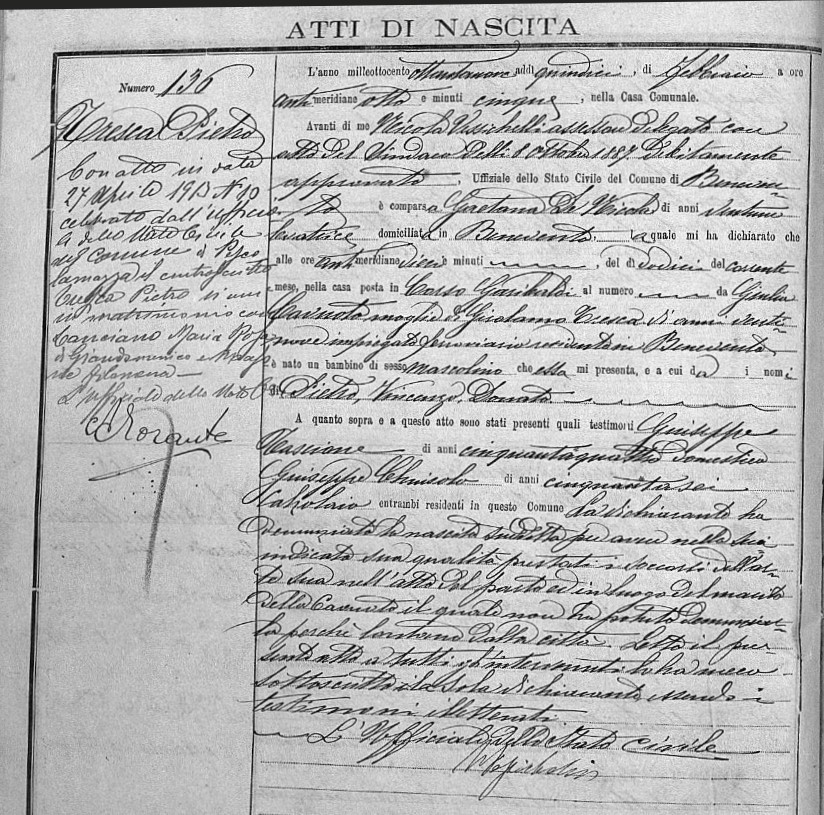 ATTI DI NASCITA
Numero 136
Tresca Pietro
Con atto in data
27 Aprile 1913 N° 10
celebrato dall'Ufficio
dello Stato Civile
del Comune di Pesco
lamazza il controscritto
Tresca Pietro si unì
in matrimonio con
Lanciano Maria Rosa
di Giandomenico e
L'Ufficiale dello Stato C.
L'anno milleottocento ottantanove addì quindici, di Febbraio a ore
anti meridiane otto e minuti cinque, nella Casa Comunale.
Avanti di me Nicola assessore delegato con
atto del Sindaco delli 8 ottobre 1887. debitamente
approvato, Uffiziale dello Stato Civile del Comune di Beneven-
to è comparsa Gaetana De Nicola di anni
levatrice domiciliata in Benevento, la quale mi ha dichiarato che
alle ore anti meridiane dieci e minuti, del dì dodici del corrente
mese, nella casa posta in Corso Garibaldi al numero da Giulia
moglie di Girolamo Tresca di anni venti-
nove impiegato ferroviario residente in Benevento
è nato un bambino di sesso mascolino che essa mi presenta, e a cui dà i nomi
di Pietro, Vincenzo, Donato.
A quanto sopra e a questo atto sono stati presenti quali testimoni Giuseppe
di anni cinquantaquattro domestico
Giuseppe di anni cinquantasei
entrambi residenti in questo Comune La dichiarante ha
denunziato la nascita suddetta per avere nella sua
indicata sua qualità prestati i soccorsi dell'ar-
te sua nell'atto del parto ed in luogo del marito
della il quale non ha potuto denunziar-
la perchè lontano dalla città. Letto il pre-
sente atto a tutti gl'intervenuti lo ha meco
sottoscritto la sola dichiarante essendo i
testimoni illetterati.
L'Ufficiale dello Stato civile